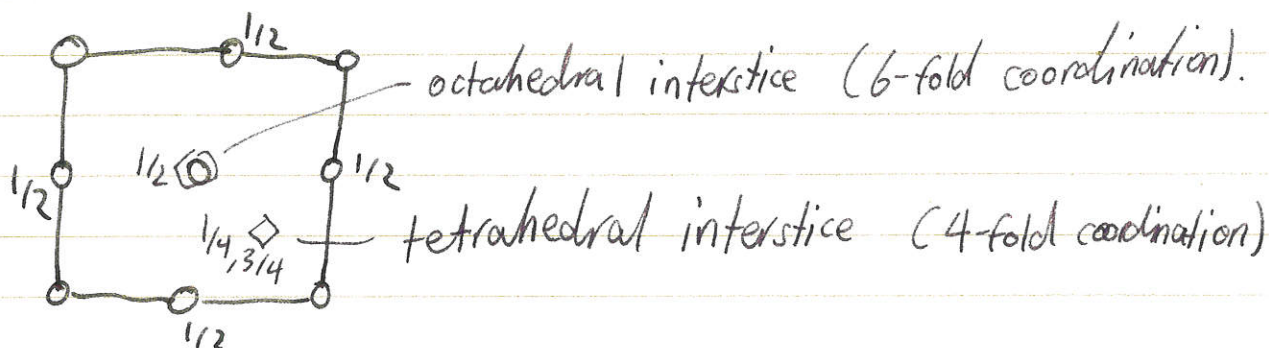 1/2
octahedral interstice (6-fold coordination).
1/2
1/2
1/2
tetrahedral interstice (4-fold coordination)
1/4, 3/4
1/2